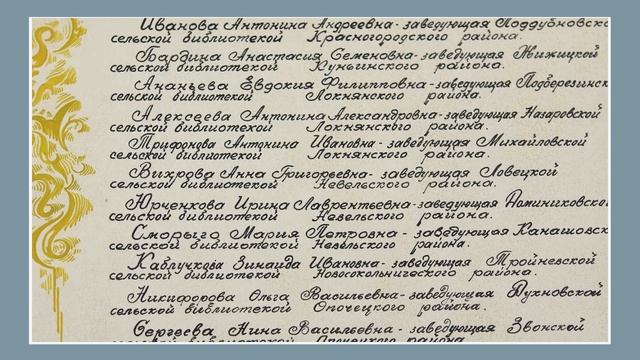 Иванова Антонина Андреевна - заведующая Поддубновско
сельской библиотекой Красногородского района.
Бардина Анастасия Семеновна - заведующая Жижицкой
сельской библиотекой Куньинского района.
Ананьева Евдокия Филипповна - заведующая Подберезинск
сельской библиотекой Локнянского района.
Алексеева Антонина Александровна - заведующая Назаровской
сельской библиотекой Локнянского района.
Трифонова Антонина Ивановна - заведующая Михайловской
сельской библиотекой Локнянского района.
Вихрова Анна Григорьевна - заведующая Ловецкой
сельской библиотекой Невельского района.
Юрченкова Ирина Лаврентьевна - заведующая Доминиковско
сельской библиотекой Невельского района.
Сморыго Мария Петровна - заведующая Канашовск
сельской библиотекой Невельского района.
Каблучкова Зинаида Ивановна - заведующая Тройневской
сельской библиотекой Новосокольнического района.
Никифорова Ольга Васильевна - заведующая Духновской
сельской библиотекой Опочецкого района.
Сергеева Нина Васильевна - заведующая Звонской
сельской библиотекой Опочецкого района.